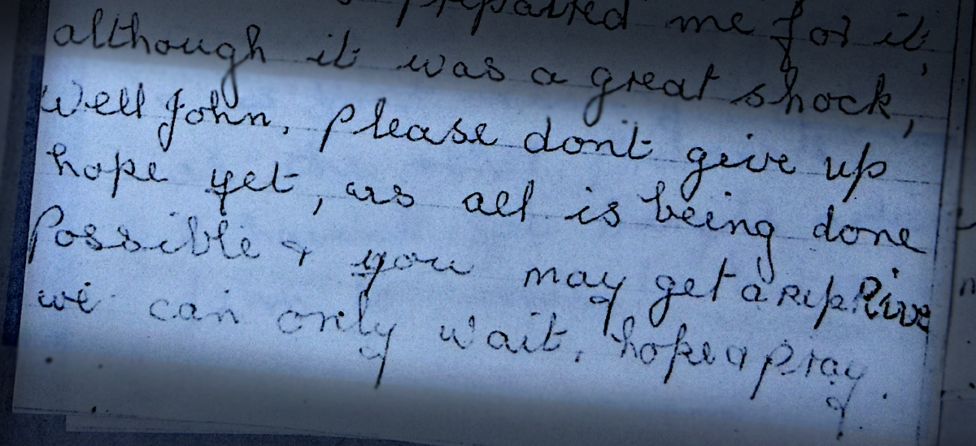 prepaired me for it,
although it was a great shock,
Well John, please dont give up
hope yet, as all is being done
Possible + you may get a repRive
we can only wait, hope & pray.